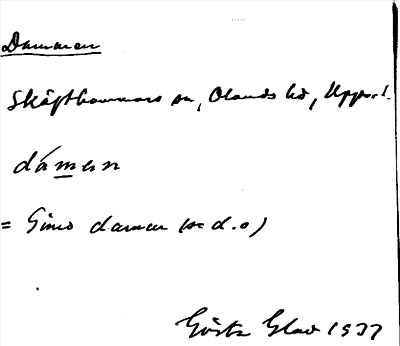 Dammaren
Skäfthammars sn, Olands hd, Uppl.
dámern
= Gimo damm (se d.o)
Gösta Glav 1937